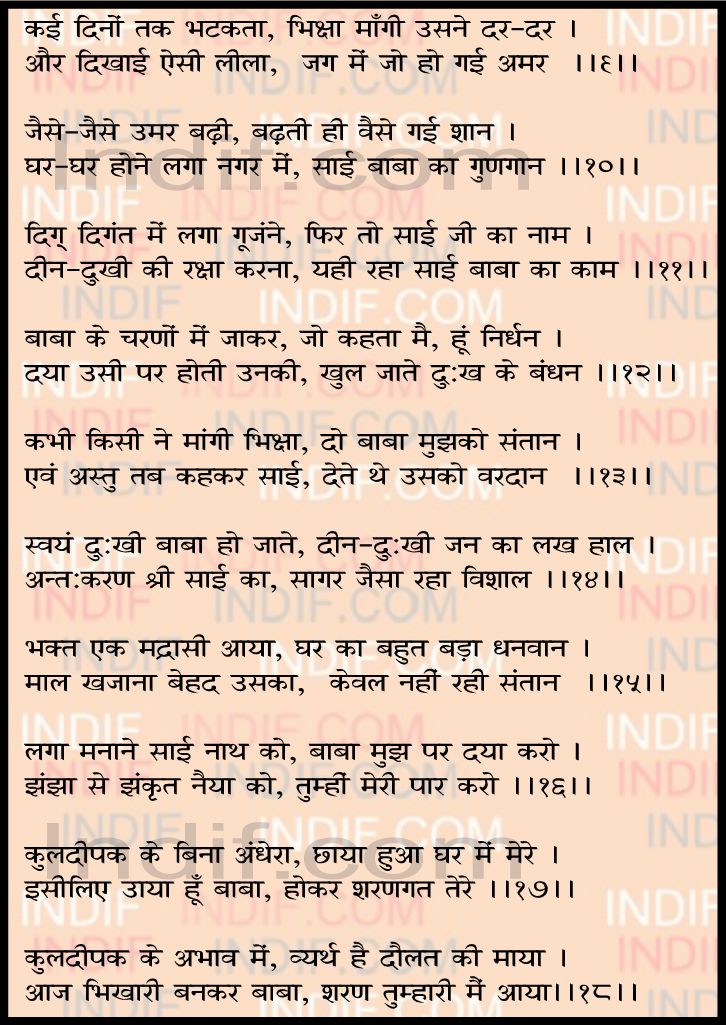 कई दिनों तक भटकता, भिक्षा माँगी उसने दर-दर ।
और दिखाई ऐसी लीला, जग में जो हो गई अमर ।।९।।
जैसे-जैसे उमर बढ़ी, बढ़ती ही वैसे गई शान ।
घर-घर होने लगा नगर में, साई बाबा का गुणगान ।।१०।।
दिग् दिगंत में लगा गूजंने, फिर तो साई जी का नाम ।
दीन-दुखी की रक्षा करना, यही रहा साई बाबा का काम ।।११।।
बाबा के चरणों में जाकर, जो कहता मै, हूं निर्धन ।
दया उसी पर होती उनकी, खुल जाते दु:ख के बंधन ।।१२।।
कभी किसी ने मांगी भिक्षा, दो बाबा मुझको संतान ।
एवं अस्तु तब कहकर साई, देते थे उसको वरदान ।।१३।।
स्वयं दु:खी बाबा हो जाते, दीन-दु:खी जन का लख हाल ।
अन्त:करण श्री साई का, सागर जैसा रहा विशाल ।।१४।।
भक्त एक मद्रासी आया, घर का बहुत बड़ा धनवान ।
माल खजाना बेहद उसका, केवल नहीं रही संतान ।।१५।।
लगा मनाने साई नाथ को, बाबा मुझ पर दया करो ।
झंझा से झंकृत नैया को, तुम्हीं मेरी पार करो ।।१६।।
कुलदीपक के बिना अंधेरा, छाया हुआ घर में मेरे ।
इसीलिए उाया हूँ बाबा, होकर शरणगत तेरे ।।१७।।
कुलदीपक के अभाव में, व्यर्थ है दौलत की माया ।
आज भिखारी बनकर बाबा, शरण तुम्हारी मैं आया।।१८।।
Indif.com
INDIF.COM